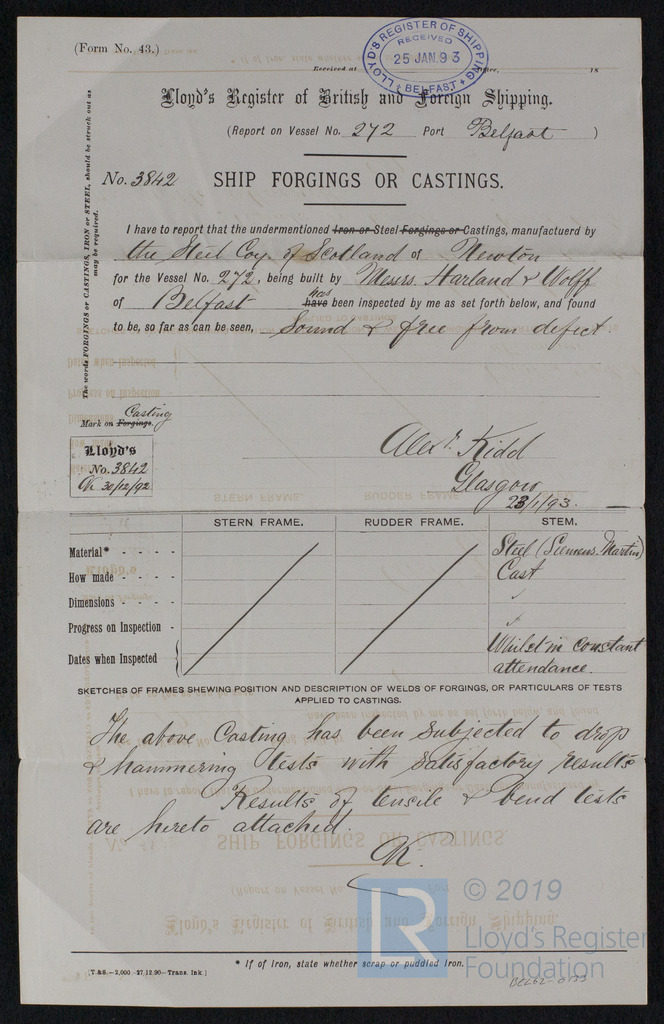 (Form No. 43.)
LLOYD'S REGISTER OF SHIPPING
RECEIVED
25 JAN. 93
BELFAST
Received at 18
Lloyd's Register of British and Foreign Shipping.
(Report on Vessel No. 272 Port Belfast )
No. 3842 SHIP FORGINGS OR CASTINGS.
The words FORGINGS or CASTINGS, IRON or STEEL, should be struck out as
may be required.
I have to report that the undermentioned Iron or Steel Forgings or Castings, manufactuerd by
the Steel Coy. of Scotland of Newton
for the Vessel No. 272, being built by Messrs. Harland & Wolff
of Belfast have has been inspected by me as set forth below, and found
to be, so far as can be seen, Sound & free from defect.
Mark on Forgings. Casting
Lloyd's
No. 3842
K 30/12/92
Alexr. Kidd
Glasgow
23/1/93.
STERN FRAME. RUDDER FRAME. STEM.
Material* - - - - Steel (Siemens Martin)
How made - - - - Cast
Dimensions - - - - "
Progress on Inspection - "
Dates when Inspected Whilst in constant
attendance.
SKETCHES OF FRAMES SHEWING POSITION AND DESCRIPTION OF WELDS OF FORGINGS, OR PARTICULARS OF TESTS
APPLIED TO CASTINGS.
The above Casting has been subjected to drop
& hammering tests with satisfactory results
Results of tensile & bend tests
are hereto attached.
K.
LR
© 2019
Lloyd's Register
Foundation
* If of Iron, state whether scrap or puddled Iron.
(T.&S.—2,000—27.12.90—Trans. Ink.)
BEL62-0133